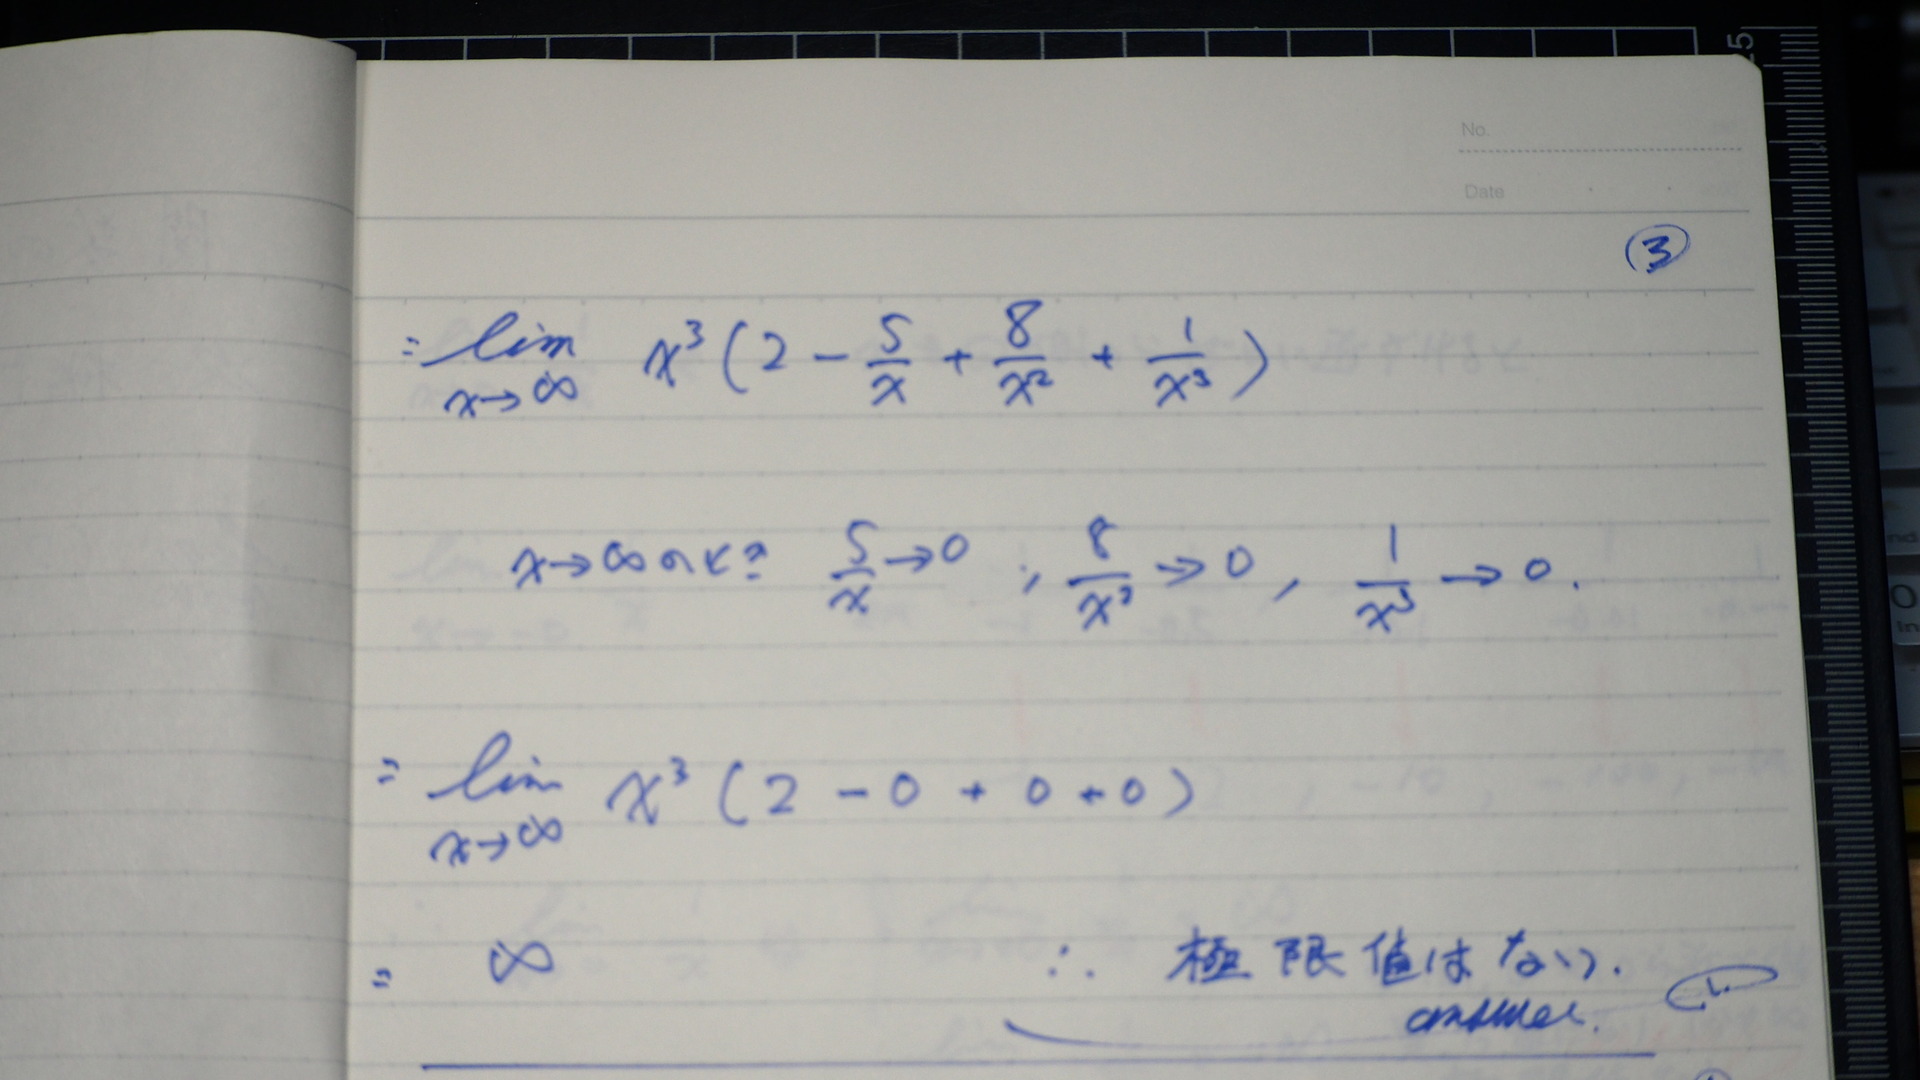 15
No.
Date
③
= lim x→∞ x³(2 - 5/x + 8/x² + 1/x³)
x→∞のとき 5/x→0, 8/x²→0, 1/x³→0.
= lim x→∞ x³(2 - 0 + 0 + 0)
= ∞ ∴ 極限値はない.
answer.